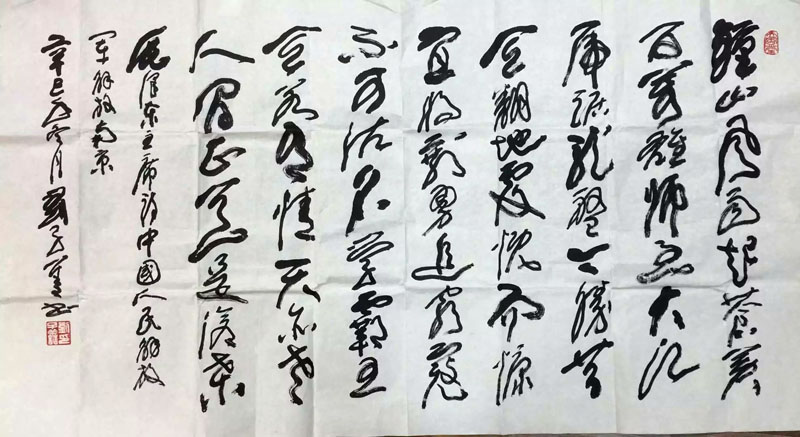 鍾山風雨起蒼黃
百萬雄師過大江
虎踞龍盤今勝昔
天翻地覆慨而慷
宜將剩勇追窮寇
不可沽名學霸王
天若有情天亦老
人間正道是滄桑
毛澤東主席詩中國人民解放
軍解放南京
辛巳冬月